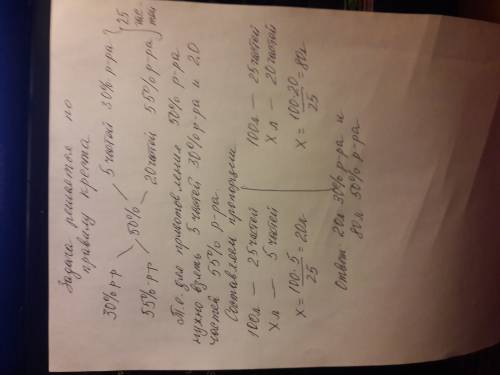 Задача решается по
правилу креста
30% р-р 5 частей 30% р-ра 25
50% час
55% р-р 20 частей 55% р-ра тей
Т.е. для приготовления 50% р-ра
нужно взять 5 частей 30% р-ра и 20
частей 55% р-ра.
Составляем пропорции
100л — 25 частей 100л — 25 частей
х л — 5 частей х л — 20 частей
х = 100·5/25 = 20л х = 100·20/25 = 80л
Ответ: 20л 30% р-ра и
80л 50% р-ра